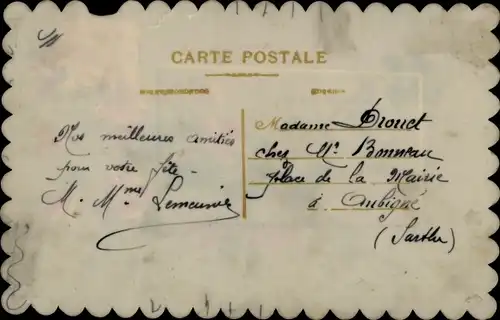 CARTE POSTALE
Nos meilleures amitiés
pour votre fête -
M. Mme Lemeunier
Madame Drouet
chez Mr Bonneau
place de la Mairie
à Aubigné
(Sarthe)